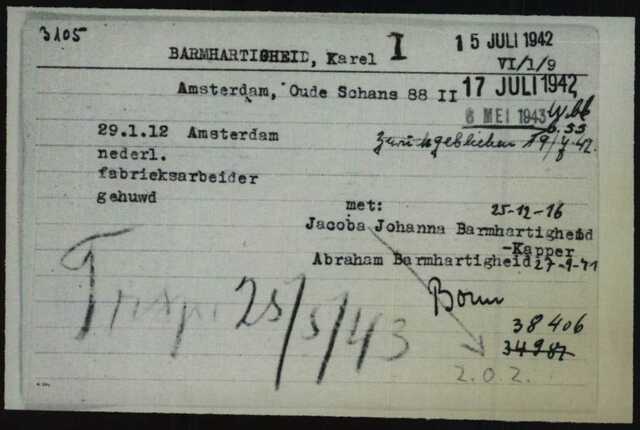 3105
BARMHARTIGHEID, Karel I
15 JULI 1942
VI/1/9
Amsterdam, Oude Schans 88 II
17 JULI 1942
6 MEI 1943
29.1.12 Amsterdam
zurückgeblieben 19/7 42.
nederl.
fabrieksarbeider
gehuwd
met: 25-12-16
Jacoba Johanna Barmhartigheid
-Kapper
Abraham Barmhartigheid 27-9-41
Transp. 25/5/43
38406
34987
Z.O.Z.